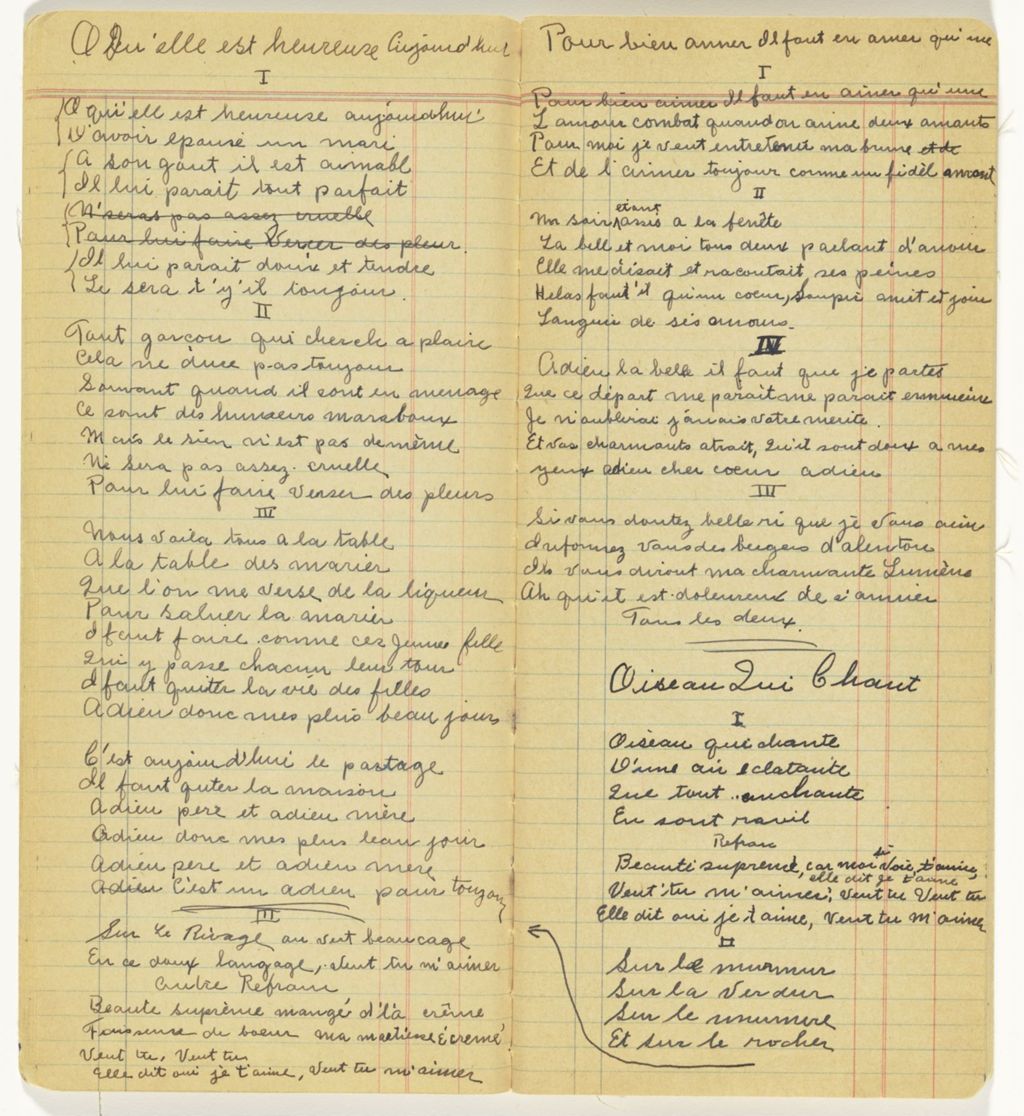 O Qu'elle est heureuse Aujourd'hui
I
O qu'ell est heureuse aujourd'hui
D'avoir epousé un mari
A son gout il est aimabl
Il lui parait tout parfait
N'seras pas assez cruelle
Pour lui faire Verser des pleur
Il lui parait doux et tendre
Le sera t'y'il toujour.
II
Tout garçon qui cherche a plaire
Cela ne dure pas toujour
Souvant quand il sont en menage
Ce sont des humeurs maraboux
Mais le sien n'est pas de même
Ne sera pas assez cruelle
Pour lui faire verser des pleurs
III
Nous voila tous a la table
A la table des marier
Que l'on me verse de la liqueur
Pour saluer la marier
I faut faire comme ces jeune fille
Qui y passe chacun leur tour
I faut quiter la vie des filles
Adieu donc mes plus beau jours
C'est aujourd'hui le partage
Il faut quter la maison
Adieu pere et adieu mère
Adieu donc mes plus beau jour
Adieu pere et adieu mere
Adieu C'est un adieu pour toujour
III
Sur Le Rivage au vert beaucage
En ce doux langage, Veut tu m'aimer
autre Refrain
Beaute suprème mangé d'là crême
Faiseuse de boeur ma machiene Écremé
Veut tu, Veut tu
Elle dit oui je t'aime, Veut tu m'aimer
Pour bien aimer Il faut en aimer qu'une
I
Pour bien aimer Il faut en aimer qu'une
L'amour combat quand on aime deux amants
Pour moi je veut entretenir ma brune et de
Et de l'aimer toujour comme un fidèl amant
II
Un soir étant assis a la fenête
La bell et moi tous deux parlant d'amour
Elle me disait et racontait ses peines
Helas faut'il qu'un coeur, Soupir anuit et jour
Languir de ses amours.
IV
Adieu la belle il faut que je partes
Que ce départ me parait me parait ennuieux
Je n'oublirai jamais votre merite.
Et vos charmants atrait, Qu'il sont doux a mes
yeux adieu cher coeur adieu
III
Si vous doutez belle si que je vous aim
Informez vous des bergers d'alentour
Ils vous diront ma charmante Lumière
Ah qu'il est doloureux de s'aimer
Tous les deux.
Oiseau Qui Chant
I
Oiseau qui chante
D'une air eclatante
Que tout enchante
En sont ravil
Refrain
Beauté suprene, car moi si Voie, t'aime
elle dit je t'aime
Veut'tu m'aimer, Veut tu Veut tu
Elle dit oui je t'aime, Veut tu m'aimer
II
Sur le murmur
Sur la Verdur
Sur le murmure
Et sur le rocher